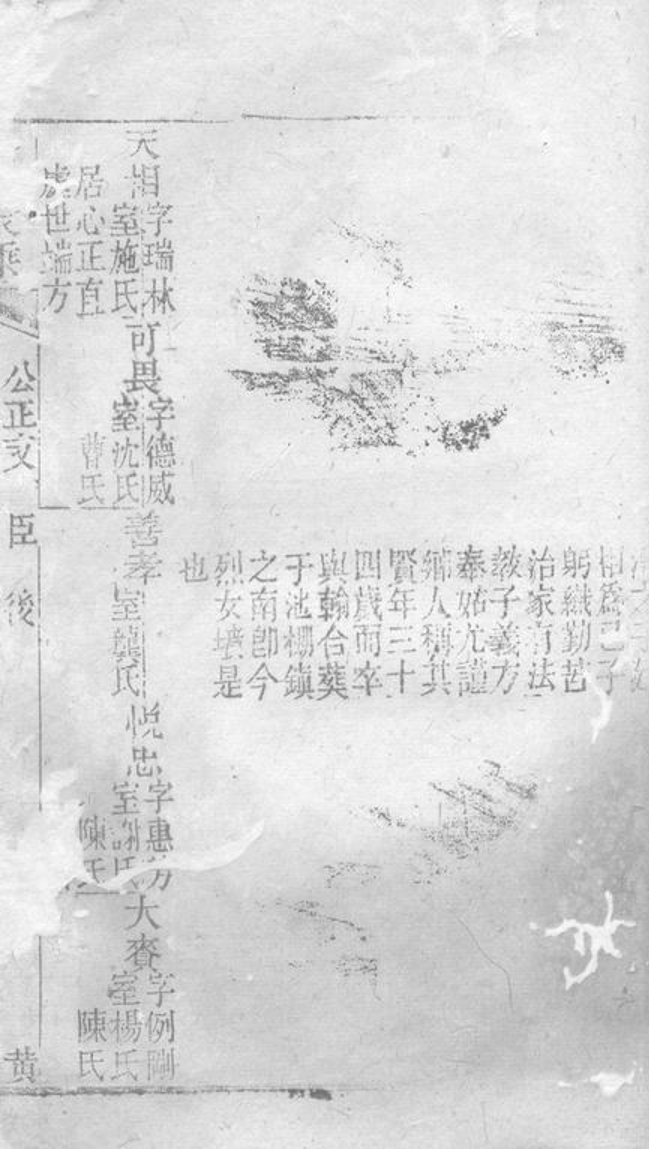 相為己子
躬織勤苦
治家有法
教子義方
奉姑尤謹
鄉人稱其
賢年三十
四歲而卒
與翰合葬
于池棚鎮
之南卽今
烈女墳是
也
天相
字瑞林
室施氏
居心正直
處世端方
可畏
字德威
室沈氏
曹氏
善孝
室龔氏
悅忠
字惠芳
室謝氏
陳氏
大賚
字例剛
室楊氏
陳氏
乘
公正支
臣
後
黄